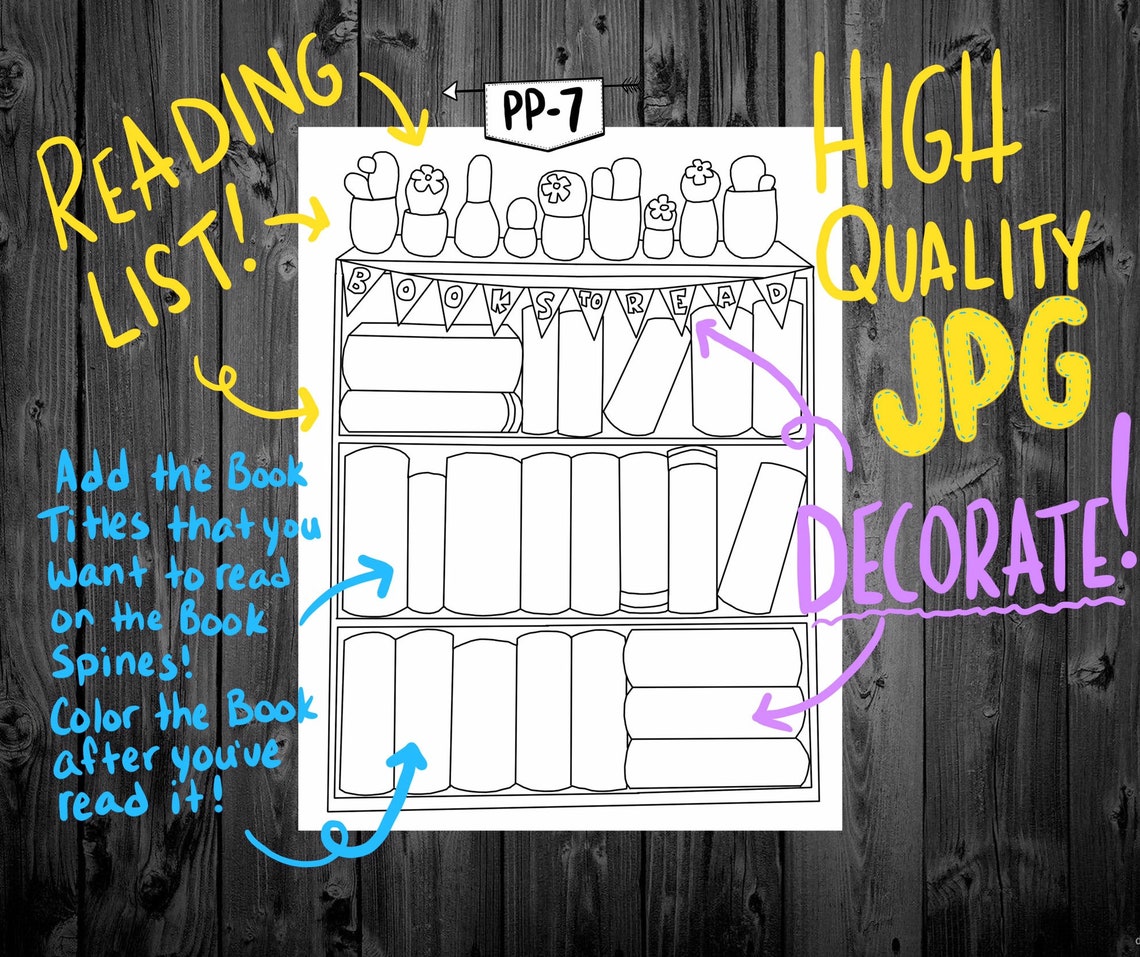 READING
LIST!
PP-7
HIGH
QUALITY
JPG
BOOKS TO READ
Add the Book
Titles that you
want to read
on the Book
Spines!
Color the Book
after you've
read it!
DECORATE!